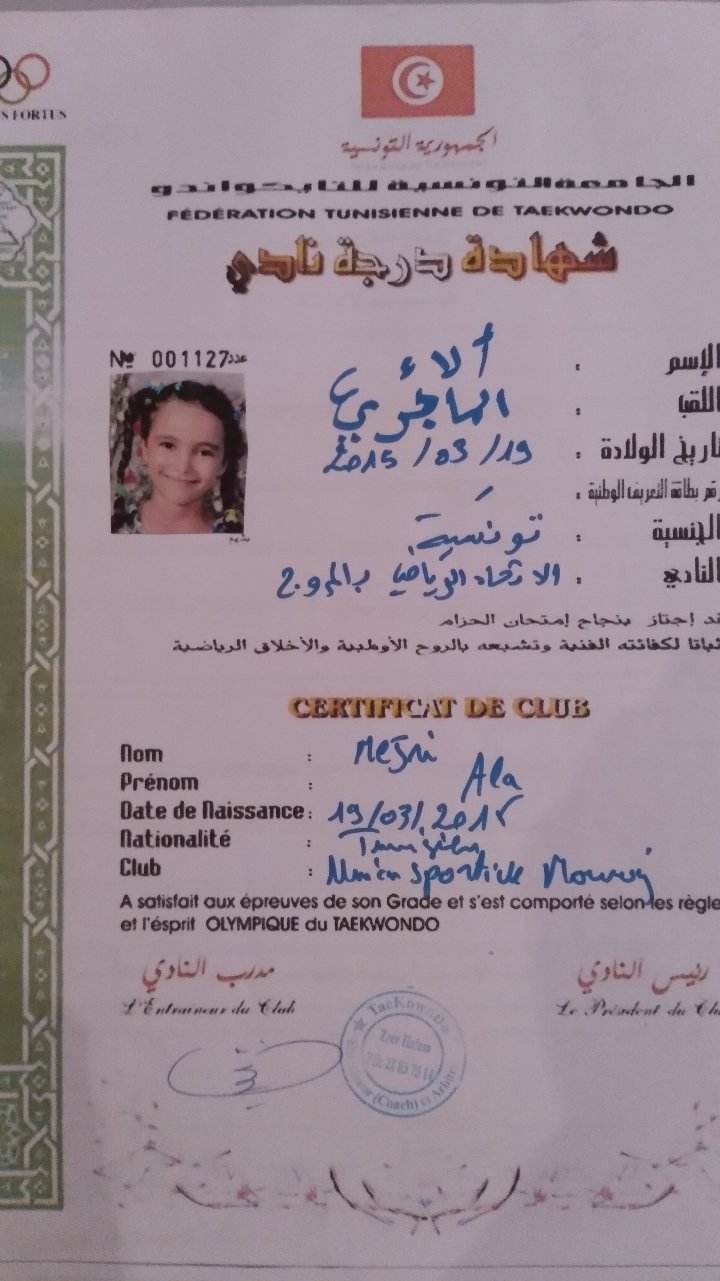 S FORTUS
الجمهورية التونسية
الجامعة التونسية للتايكواندو
FÉDÉRATION TUNISIENNE DE TAEKWONDO
شهادة درجة نادي
Nº 001127 عدد
الإسم : ألاء
اللقب : الماجري
تاريخ الولادة : 2015/03/19
رقم بطاقة التعريف الوطنية :
الجنسية : تونسية
النادي : الاتحاد الرياضي بالمروج
قد إجتاز بنجاح إمتحان الحزام
ثباتا لكفائته الفنية وتشبعه بالروح الأولمبية والأخلاق الرياضية
CERTIFICAT DE CLUB
Nom : Mejri
Prénom : Ala
Date de Naissance : 19/03/2015
Nationalité : Tunisien
Club : Union sportive Mourouj
A satisfait aux épreuves de son Grade et s'est comporté selon les règle
et l'ésprit OLYMPIQUE du TAEKWONDO
مدرب النادي رئيس النادي
L'Entraineur du Club Le Président du Clu
TaeKwonDo
(Coach) et Arbitre